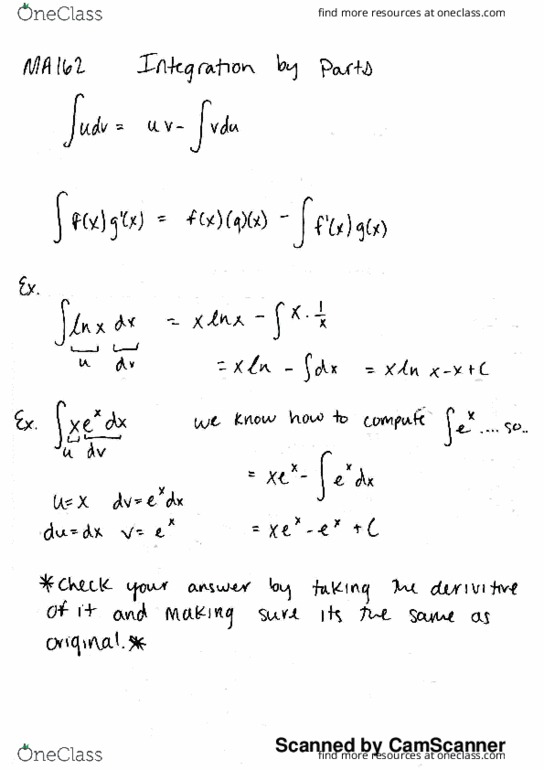 OneClass find more resources at oneclass.com
MA162 Integration by Parts
∫udv = uv - ∫vdu
∫f(x)g'(x) = f(x)(g)(x) - ∫f'(x)g(x)
Ex.
∫ln x dx = x ln x - ∫x · 1/x
u dv = x ln - ∫dx = x ln x - x + C
Ex. ∫xe^x dx we know how to compute ∫e^x .... so..
u dv
= xe^x - ∫e^x dx
u = x dv = e^x dx
du = dx v = e^x = xe^x - e^x + C
*Check your answer by taking the derivitive
of it and making sure its the same as
original.*
Scanned by CamScanner
OneClass find more resources at oneclass.com